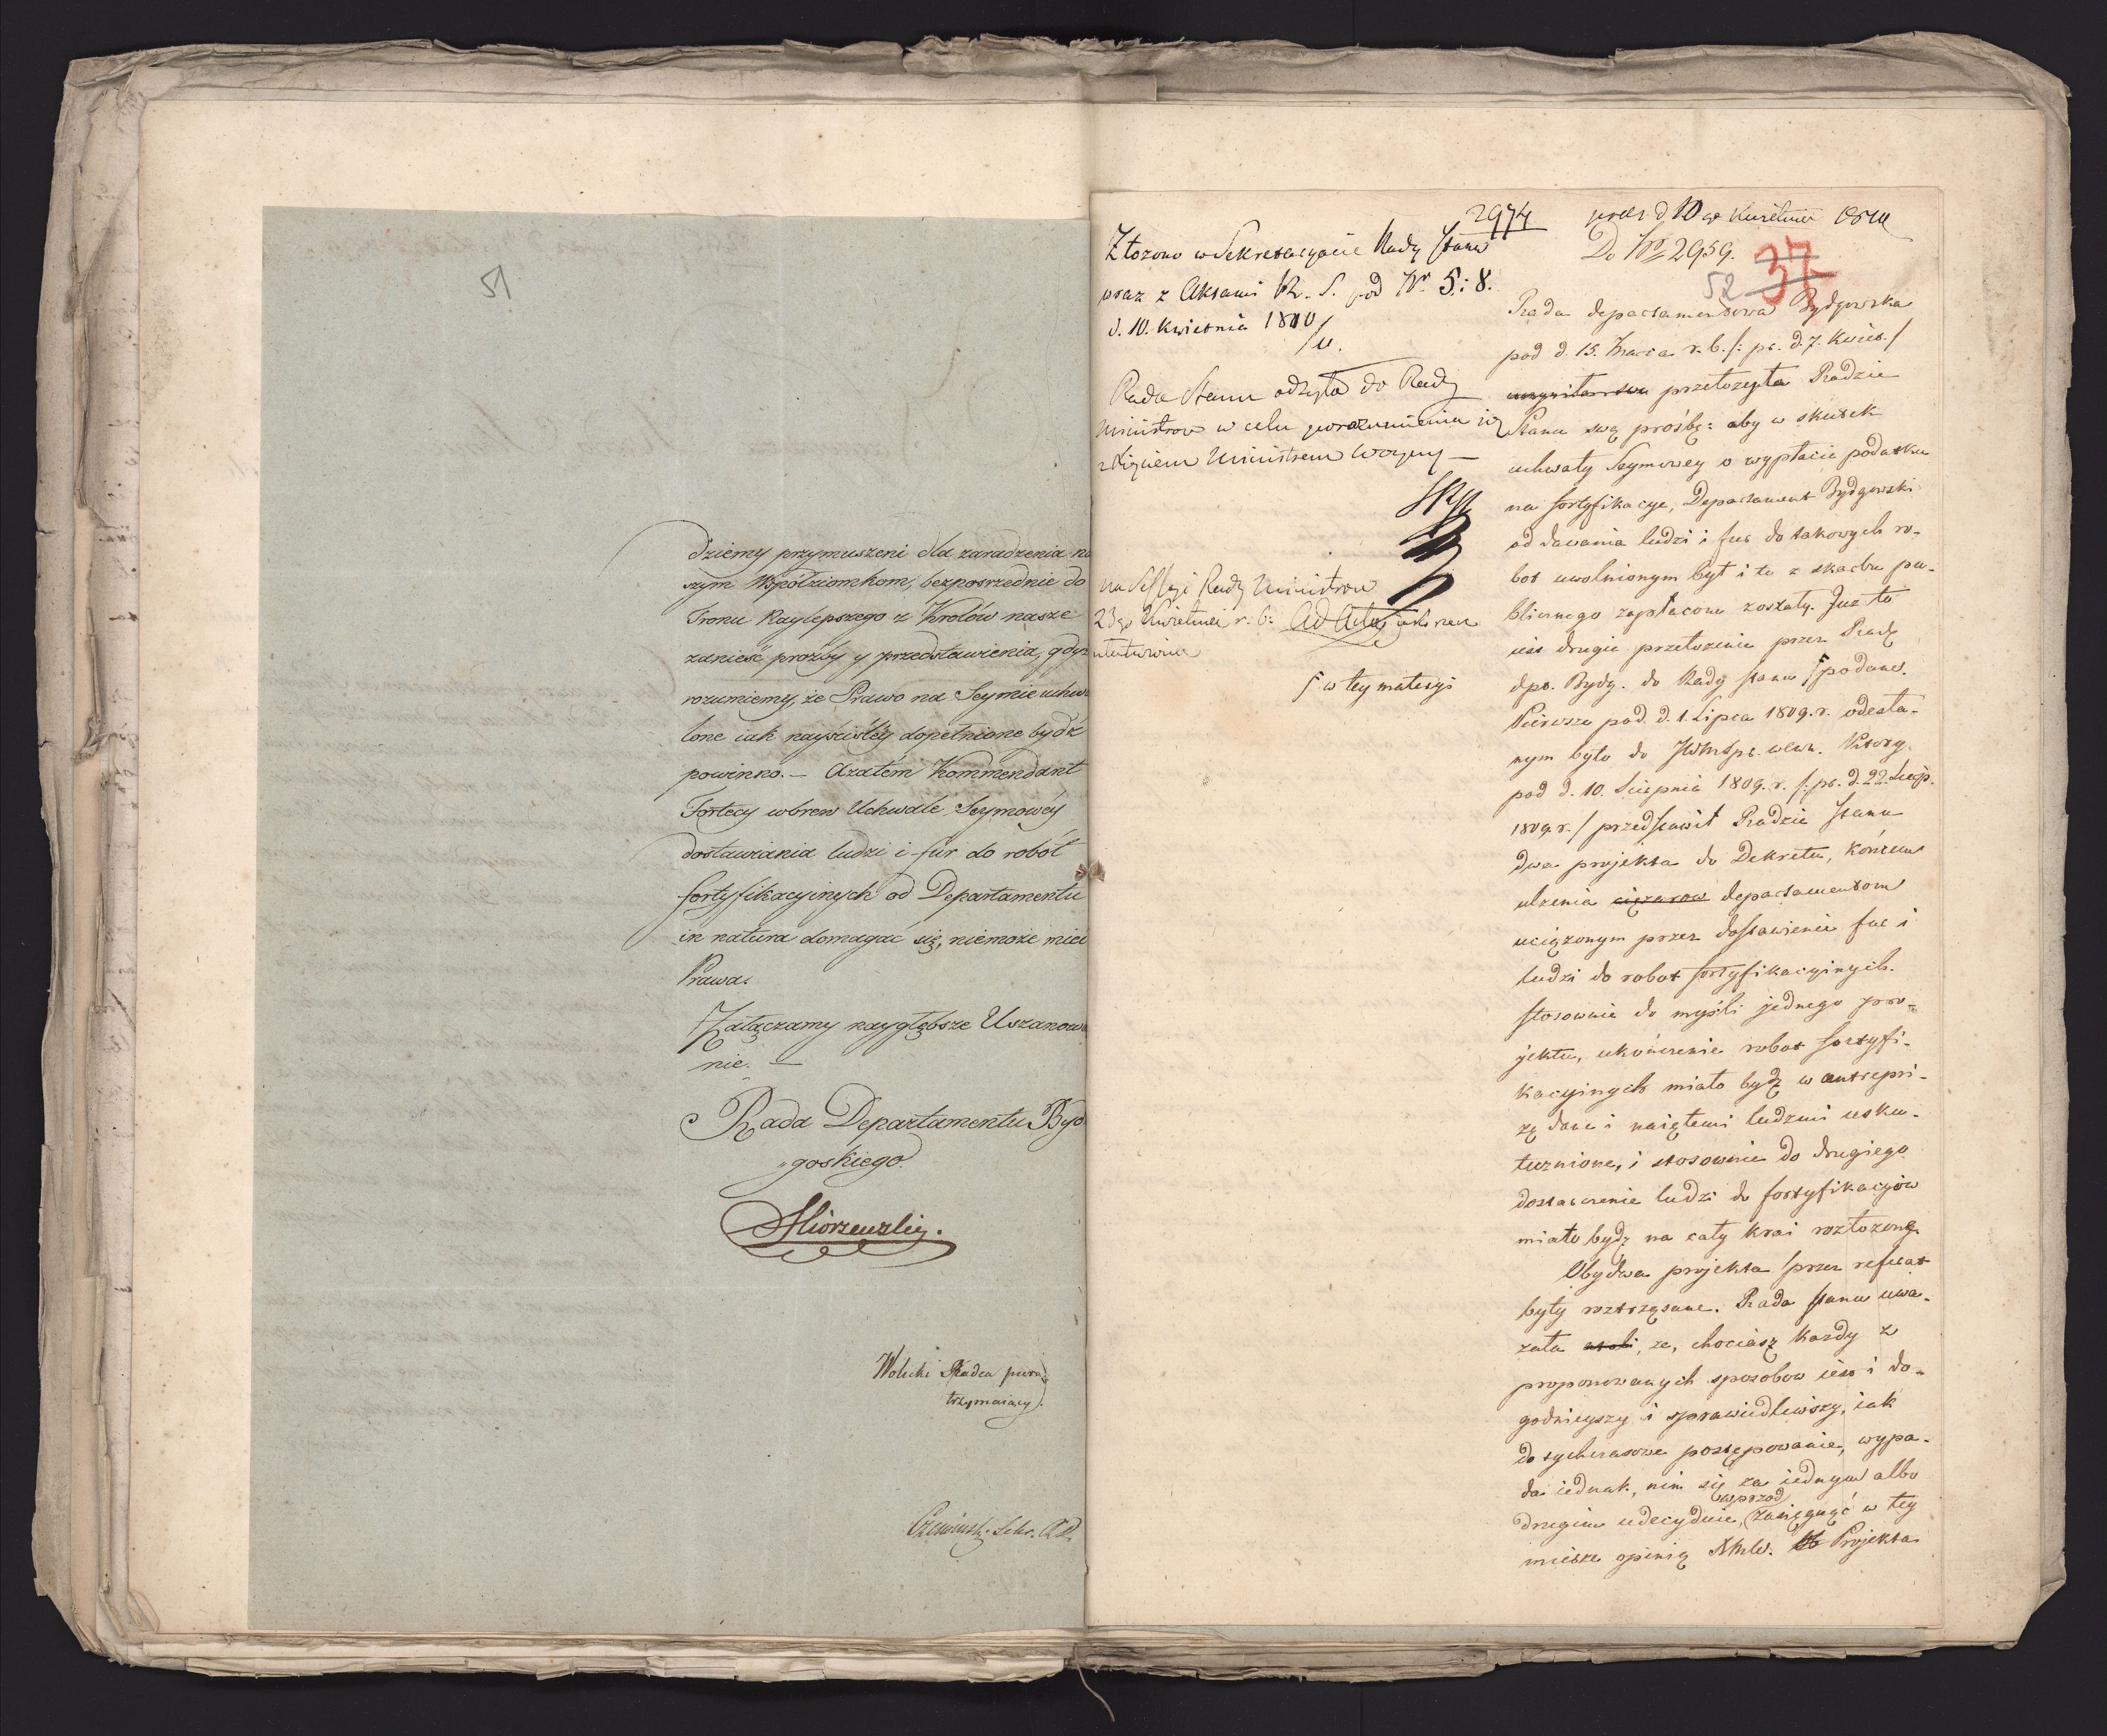 51
dziemy przymuszeni dla zaradzenia na
szym Współziomkom, bezposrzednie do
Tronu Naylepszego z Krolów nasze
zanieść prozby y przedstawienia, gdyz
rozumiemy, że Prawo na Seymie uchwa
lone iak nayściśléy dopełnione bydź
powinno. — Azatém Kommendant
Fortecy wbrew Uchwale Seymowéy
dostawiania ludzi i fur do robót
fortyfikacyinych od Departamentu
in natura domagać się, niemoże mieć
Prawa.
Załączamy naygłębsze Uszanowa
nie. —
Rada Departamentu Byd
goskiego.
Wolicki Radca pióro
trzymaiący.
2974
Złozono w Sekretaryacie Rady Stanu
wraz z Aktami R. S. pod Nr. 5 i 8.
d. 10. Kwietnia 1810
Rada Stanu odsyła do Rady
Ministrow w celu porozumienia się
z Xięciem Ministrem Woyny —
na Sessyi Rady Ministrow
23go Kwietnia r. b. Ad Acta
ſ w tey materyi
d 10 go Kwietnia 1810
Do No 2959.
52 37
Rada departamentowa Bydgowska
pod d. 15. Marca r. b. /: pr. d. 7. Kwiet. /
przełozyła Radzie
Stanu swą prośbę: aby w skutek
uchwały Seymowey o wypłacie podatku
na fortyfikacye, Departament Bydgowski
od dawania ludzi i fur do takowych ro-
bot uwolnionym był i te z skarbu pu-
blicznego zapłacone zostały. Juz to
iest drugie przełozenie przez Radę
dpt. Bydg. do Rady Stanu ſ podane.
Pierwsze pod d. 1. Lipca 1809. r. odesła-
nym było do JWMSpr. wewn. Ktory
pod d. 10. Sierpnia 1809. r. /: pr. d. 22. Sierp.
1809. r. / przedstawił Radzie Stanu
dwa projekta do Dekretu, końcem
ulzenia cięzarow departamentom
uciązonym przez dostawienie fur i
ludzi do robot fortyfikacyinych.
Stosownie do myśli jednego pro-
jektu, ukończenie robot fortyfi-
kacyinych miało bydz w antrepri-
zę dane i naiętemi ludzmi usku-
tecznione, i stosownie do drugiego
dostarczenie ludzi do fortyfikacyiow
miało bydz na cały Krai rozłozone.
Obydwa projekta przez referat
były roztrząsane. Rada Stanu uwa-
zała, ze, chociasz Kazdy z
proponowanych sposobow iest i do-
godnieyszy i sprawiedliwszy, iak
do tychczasowe postępowanie, wypa-
da iednak, nim się za iednym albo
wprzod
drugim udecyduie, zasięgnąć w tey
mierze opinią Projekta